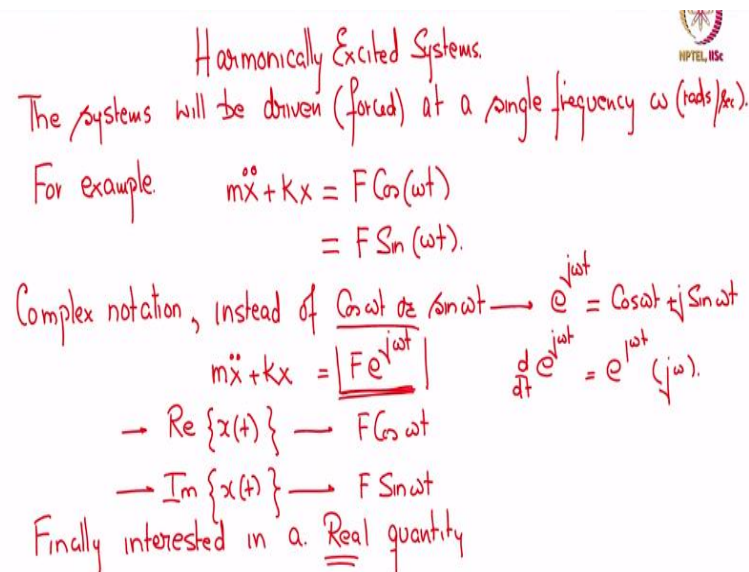 NPTEL, IISc
Harmonically Excited Systems.
The systems will be driven (forced) at a single frequency ω (rads/sec).
For example. mẍ + kx = F Cos(ωt)
= F Sin (ωt).
Complex notation, instead of Cosωt or sinωt — e^{jωt} = Cosωt + j Sinωt
mẍ + kx = Fe^{jωt} d/dt e^{jωt} = e^{jωt} (jω).
→ Re {x(t)} — F Cos ωt
→ Im {x(t)} — F Sinωt
Finally interested in a. Real quantity